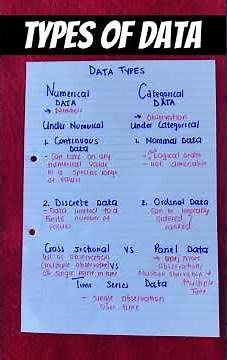 TYPES OF DATA
DATA TYPES
Numerical DATA
→ Numbers
Under Numerical
1. Continuous Data
- Can take on any
numerical value
in a specific range
of values
2. Discrete Data
- Data limited to a
finite number of
values
Categorical DATA
→ Observation
Under Categorical
1. Nominal Data
- logical order
- not
2. Ordinal Data
- Can be logically
ordered /
ranked
Cross Sectional VS Panel Data
observation
at single point in time
VS
observations
Multiple observation +
Multiple
Time
Time Series Data
- Single observation
over time